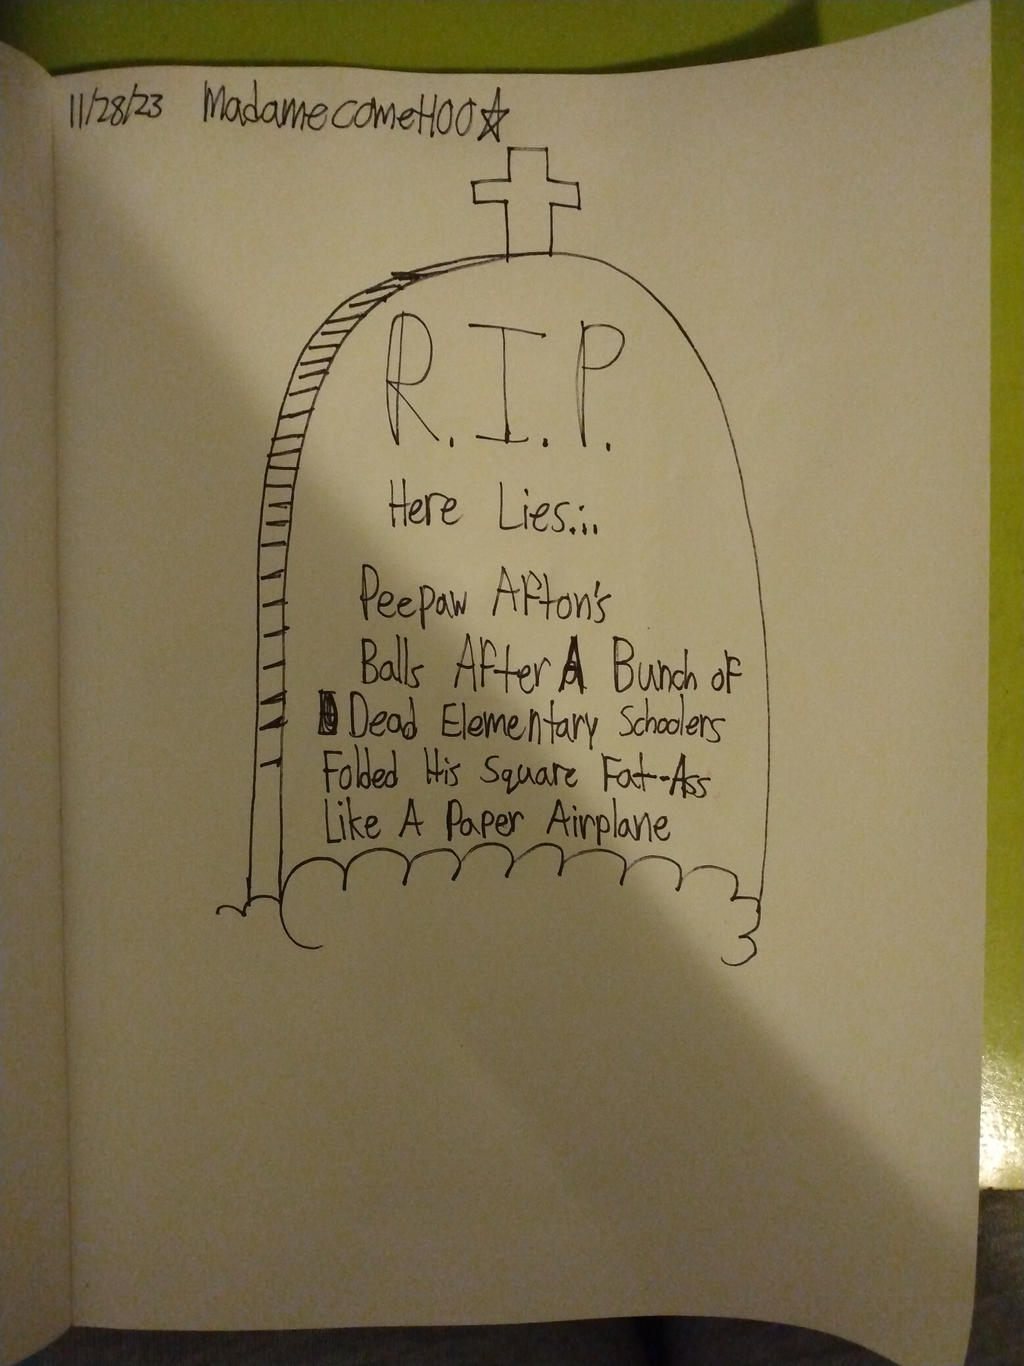 11/28/23 MadamecomeHOO☆
R.I.P.
Here Lies...
Peepaw Afton's
Balls After A Bunch of
Dead Elementary Schoolers
Folded His Square Fat-Ass
Like A Paper Airplane